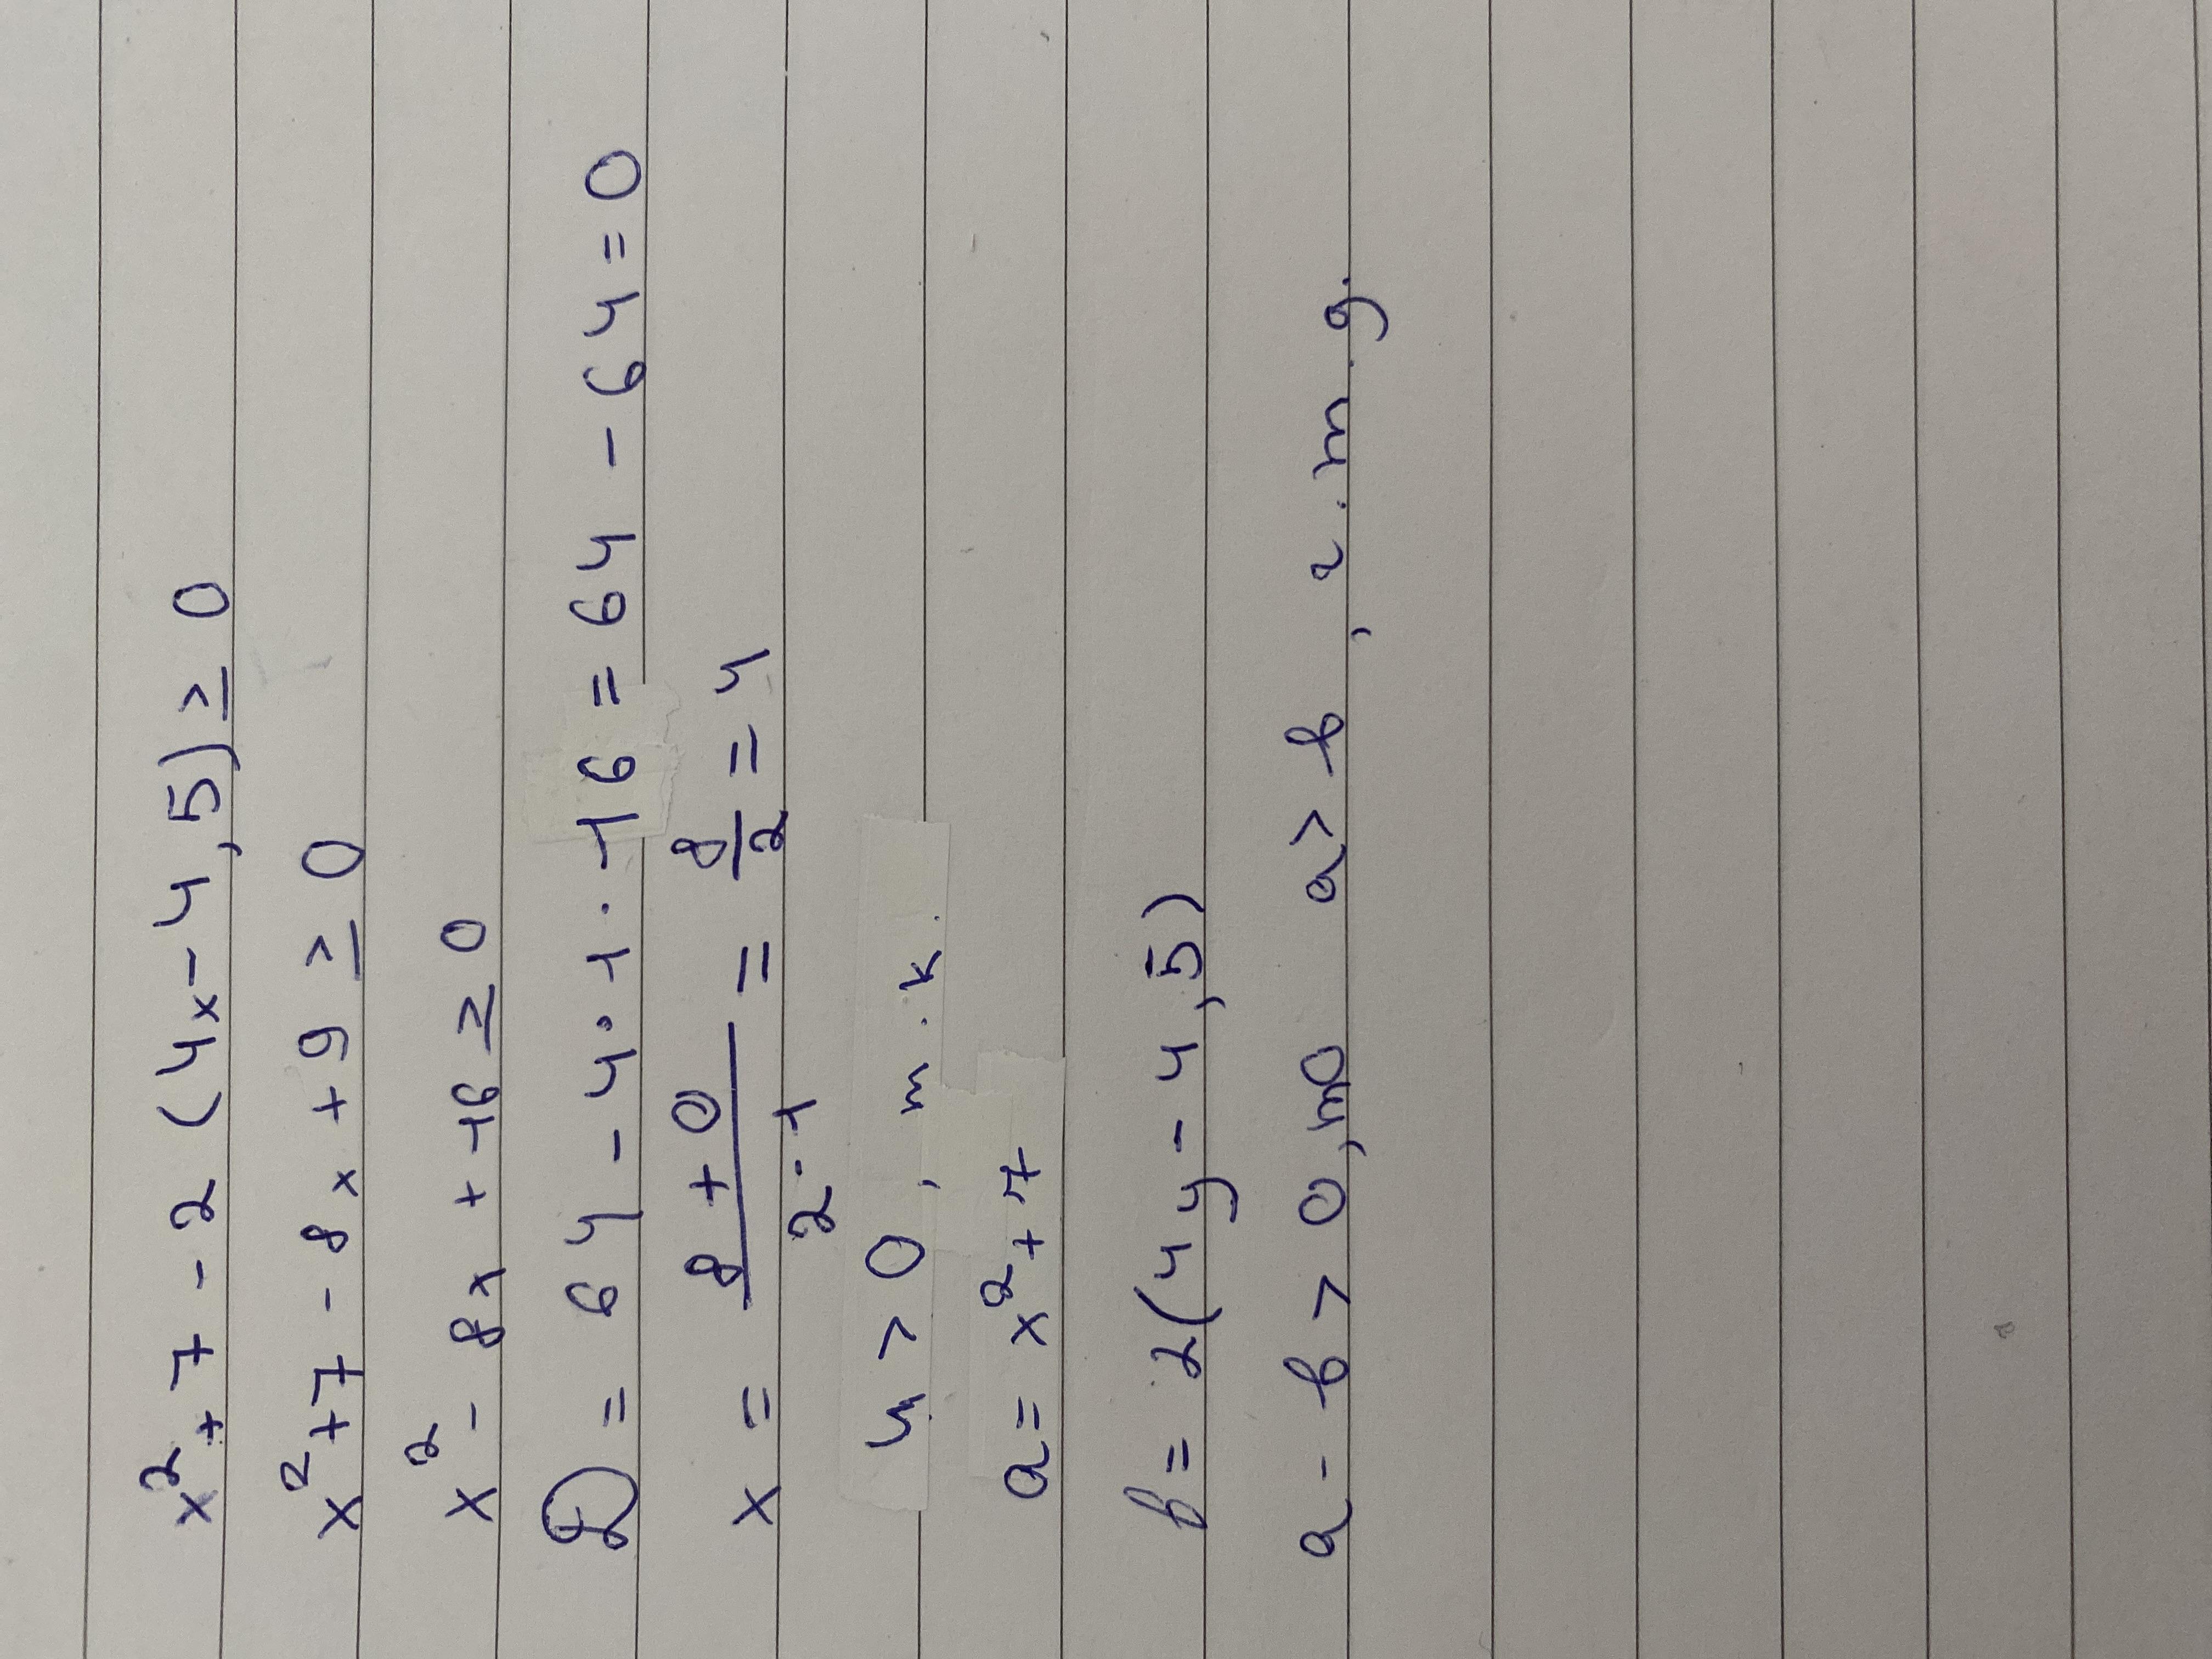 x² + 7 - 2 (4x - 4,5) ≥ 0
x² + 7 - 8x + 9 ≥ 0
x² - 8x + 16 ≥ 0
D = 64 - 4 · 1 · 16 = 64 - 64 = 0
x = (8 + 0)/(2 · 1) = 8/2 = 4
4 > 0, т.к.
a = x² + 7
b = 2(4y - 4,5)
a - b > 0, то a > b, ч.т.д.